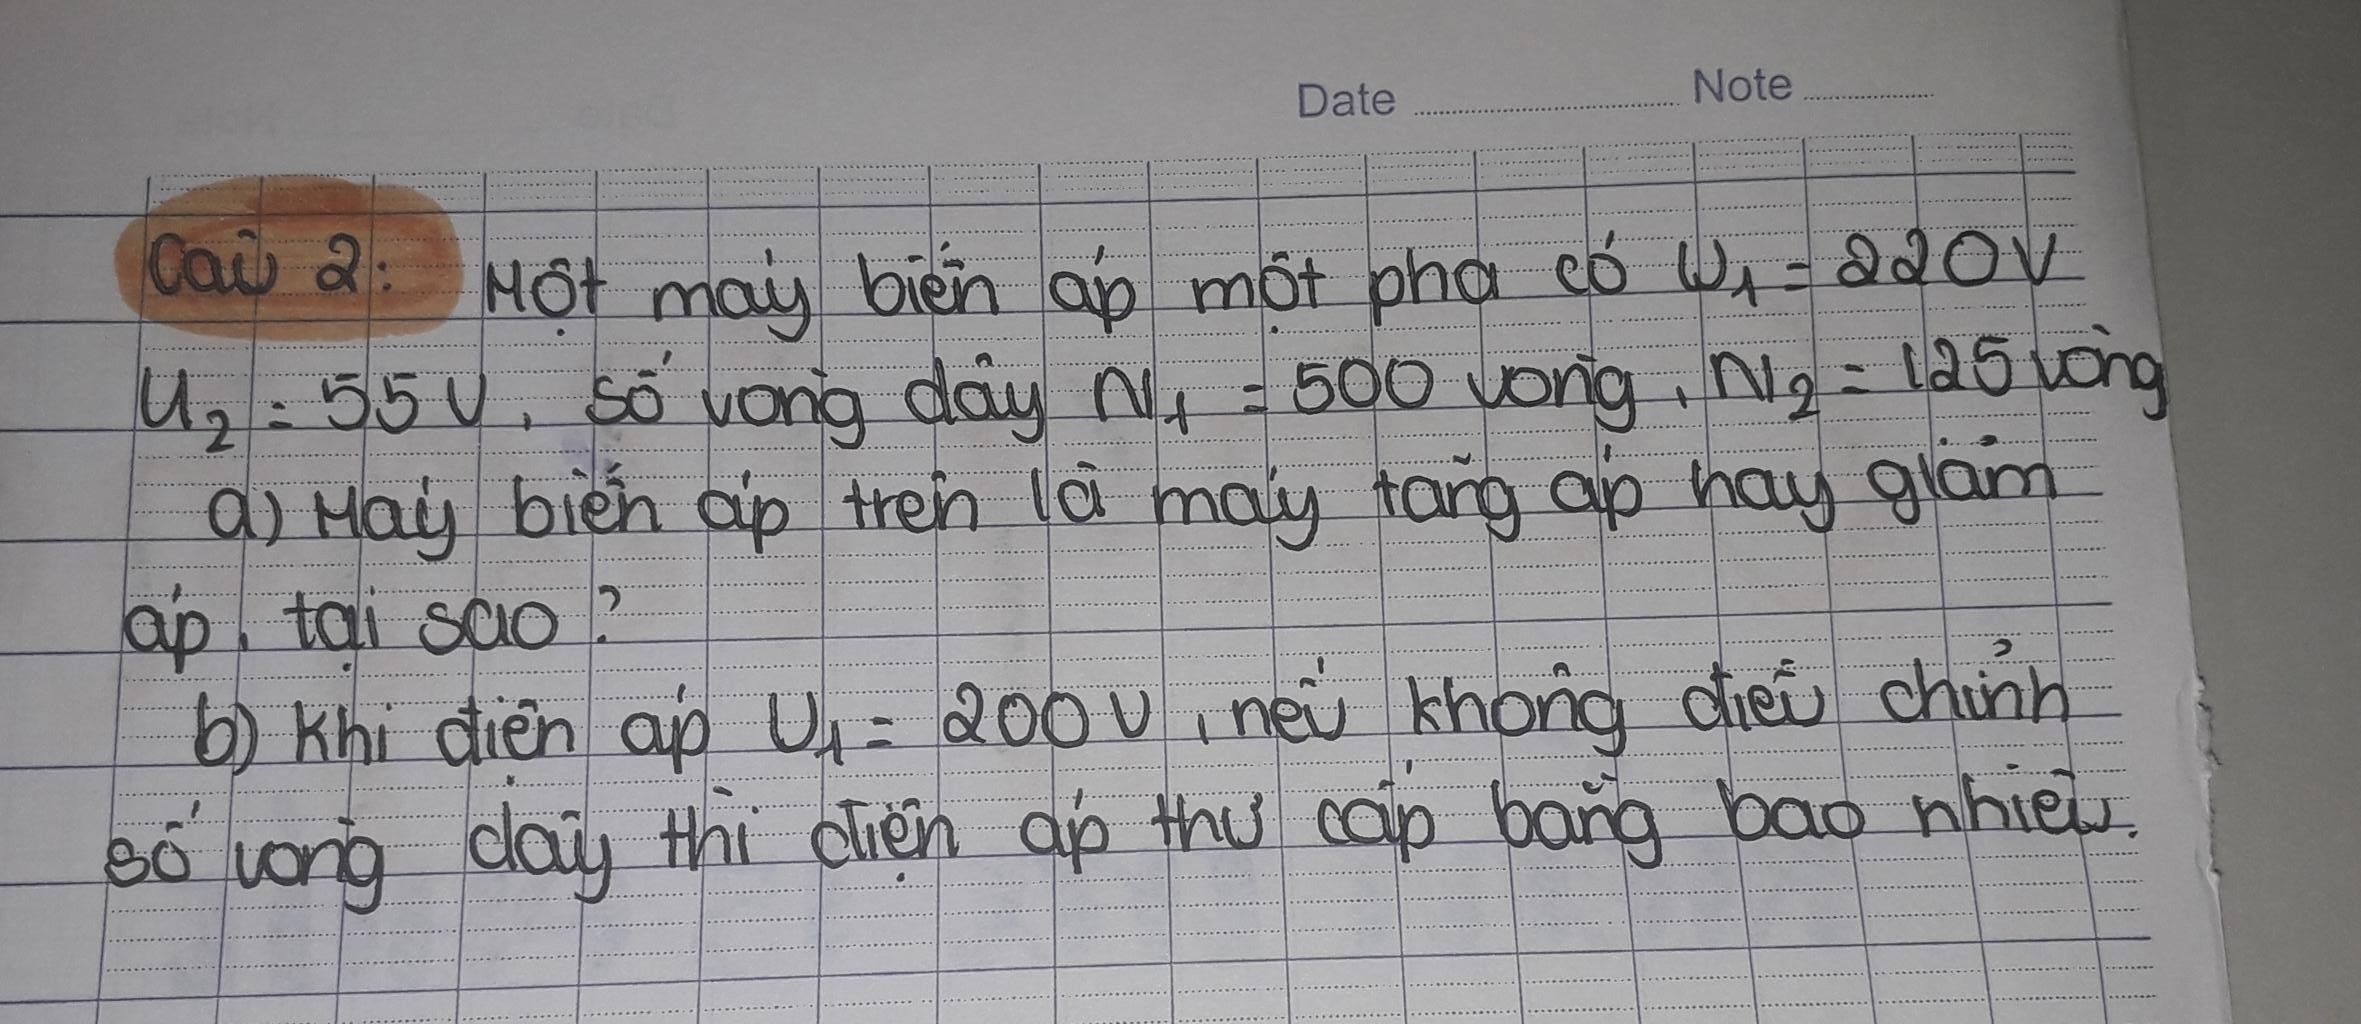 Date Note
Câu 2: Một máy biến áp một pha có U1 = 220V
U2 = 55V, số vòng dây N1 = 500 vòng, N2 = 125 vòng
a) Máy biến áp trên là máy tăng áp hay giảm
áp, tại sao?
b) Khi điện áp U1 = 200V, nếu không điều chỉnh
số vòng dây thì điện áp thứ cấp bằng bao nhiêu.